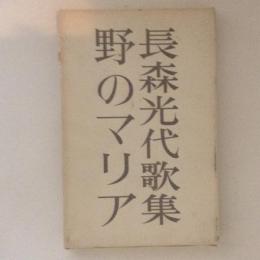 長森光代歌集
野のマリア